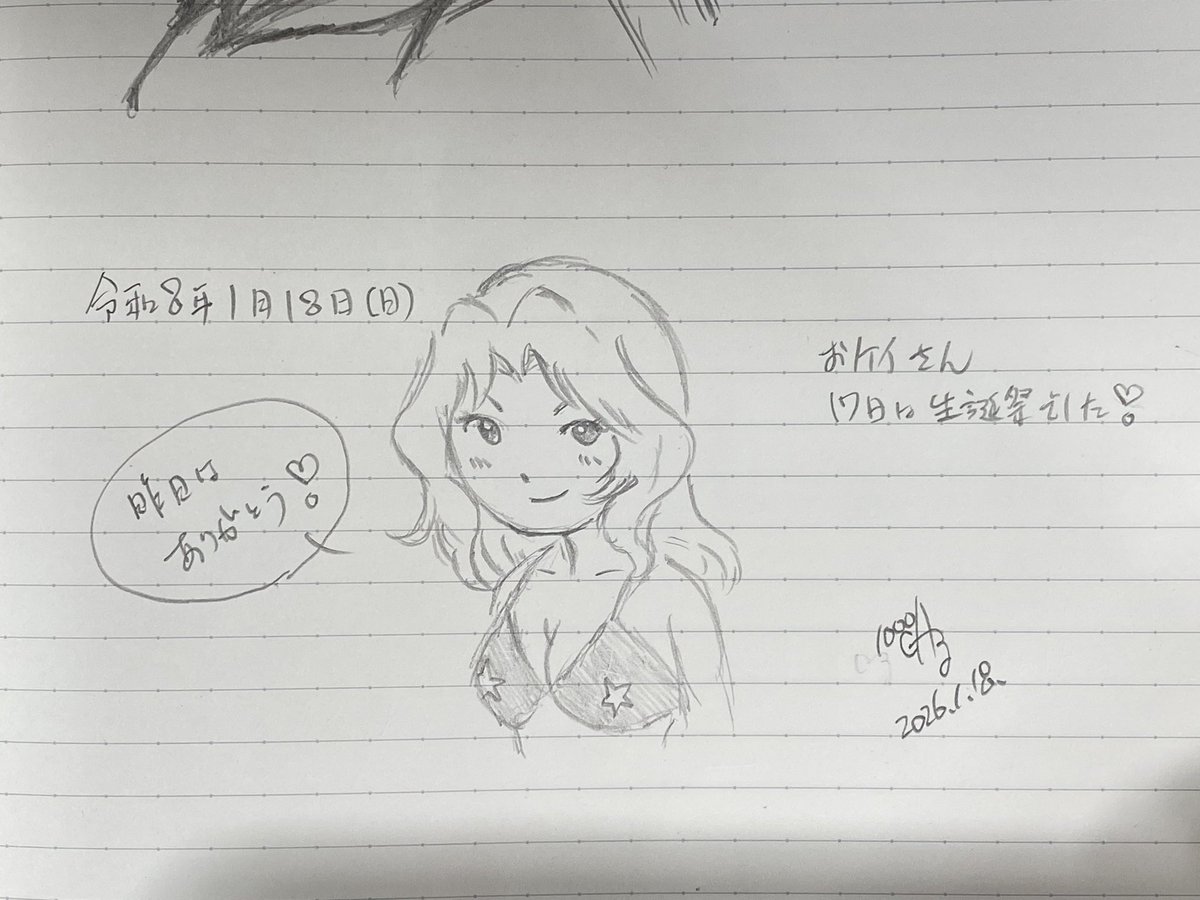 令和8年1月18日(日)
おケイさん
17日に生誕祭でした♡
昨日は
ありがとう♡
2026.1.18.